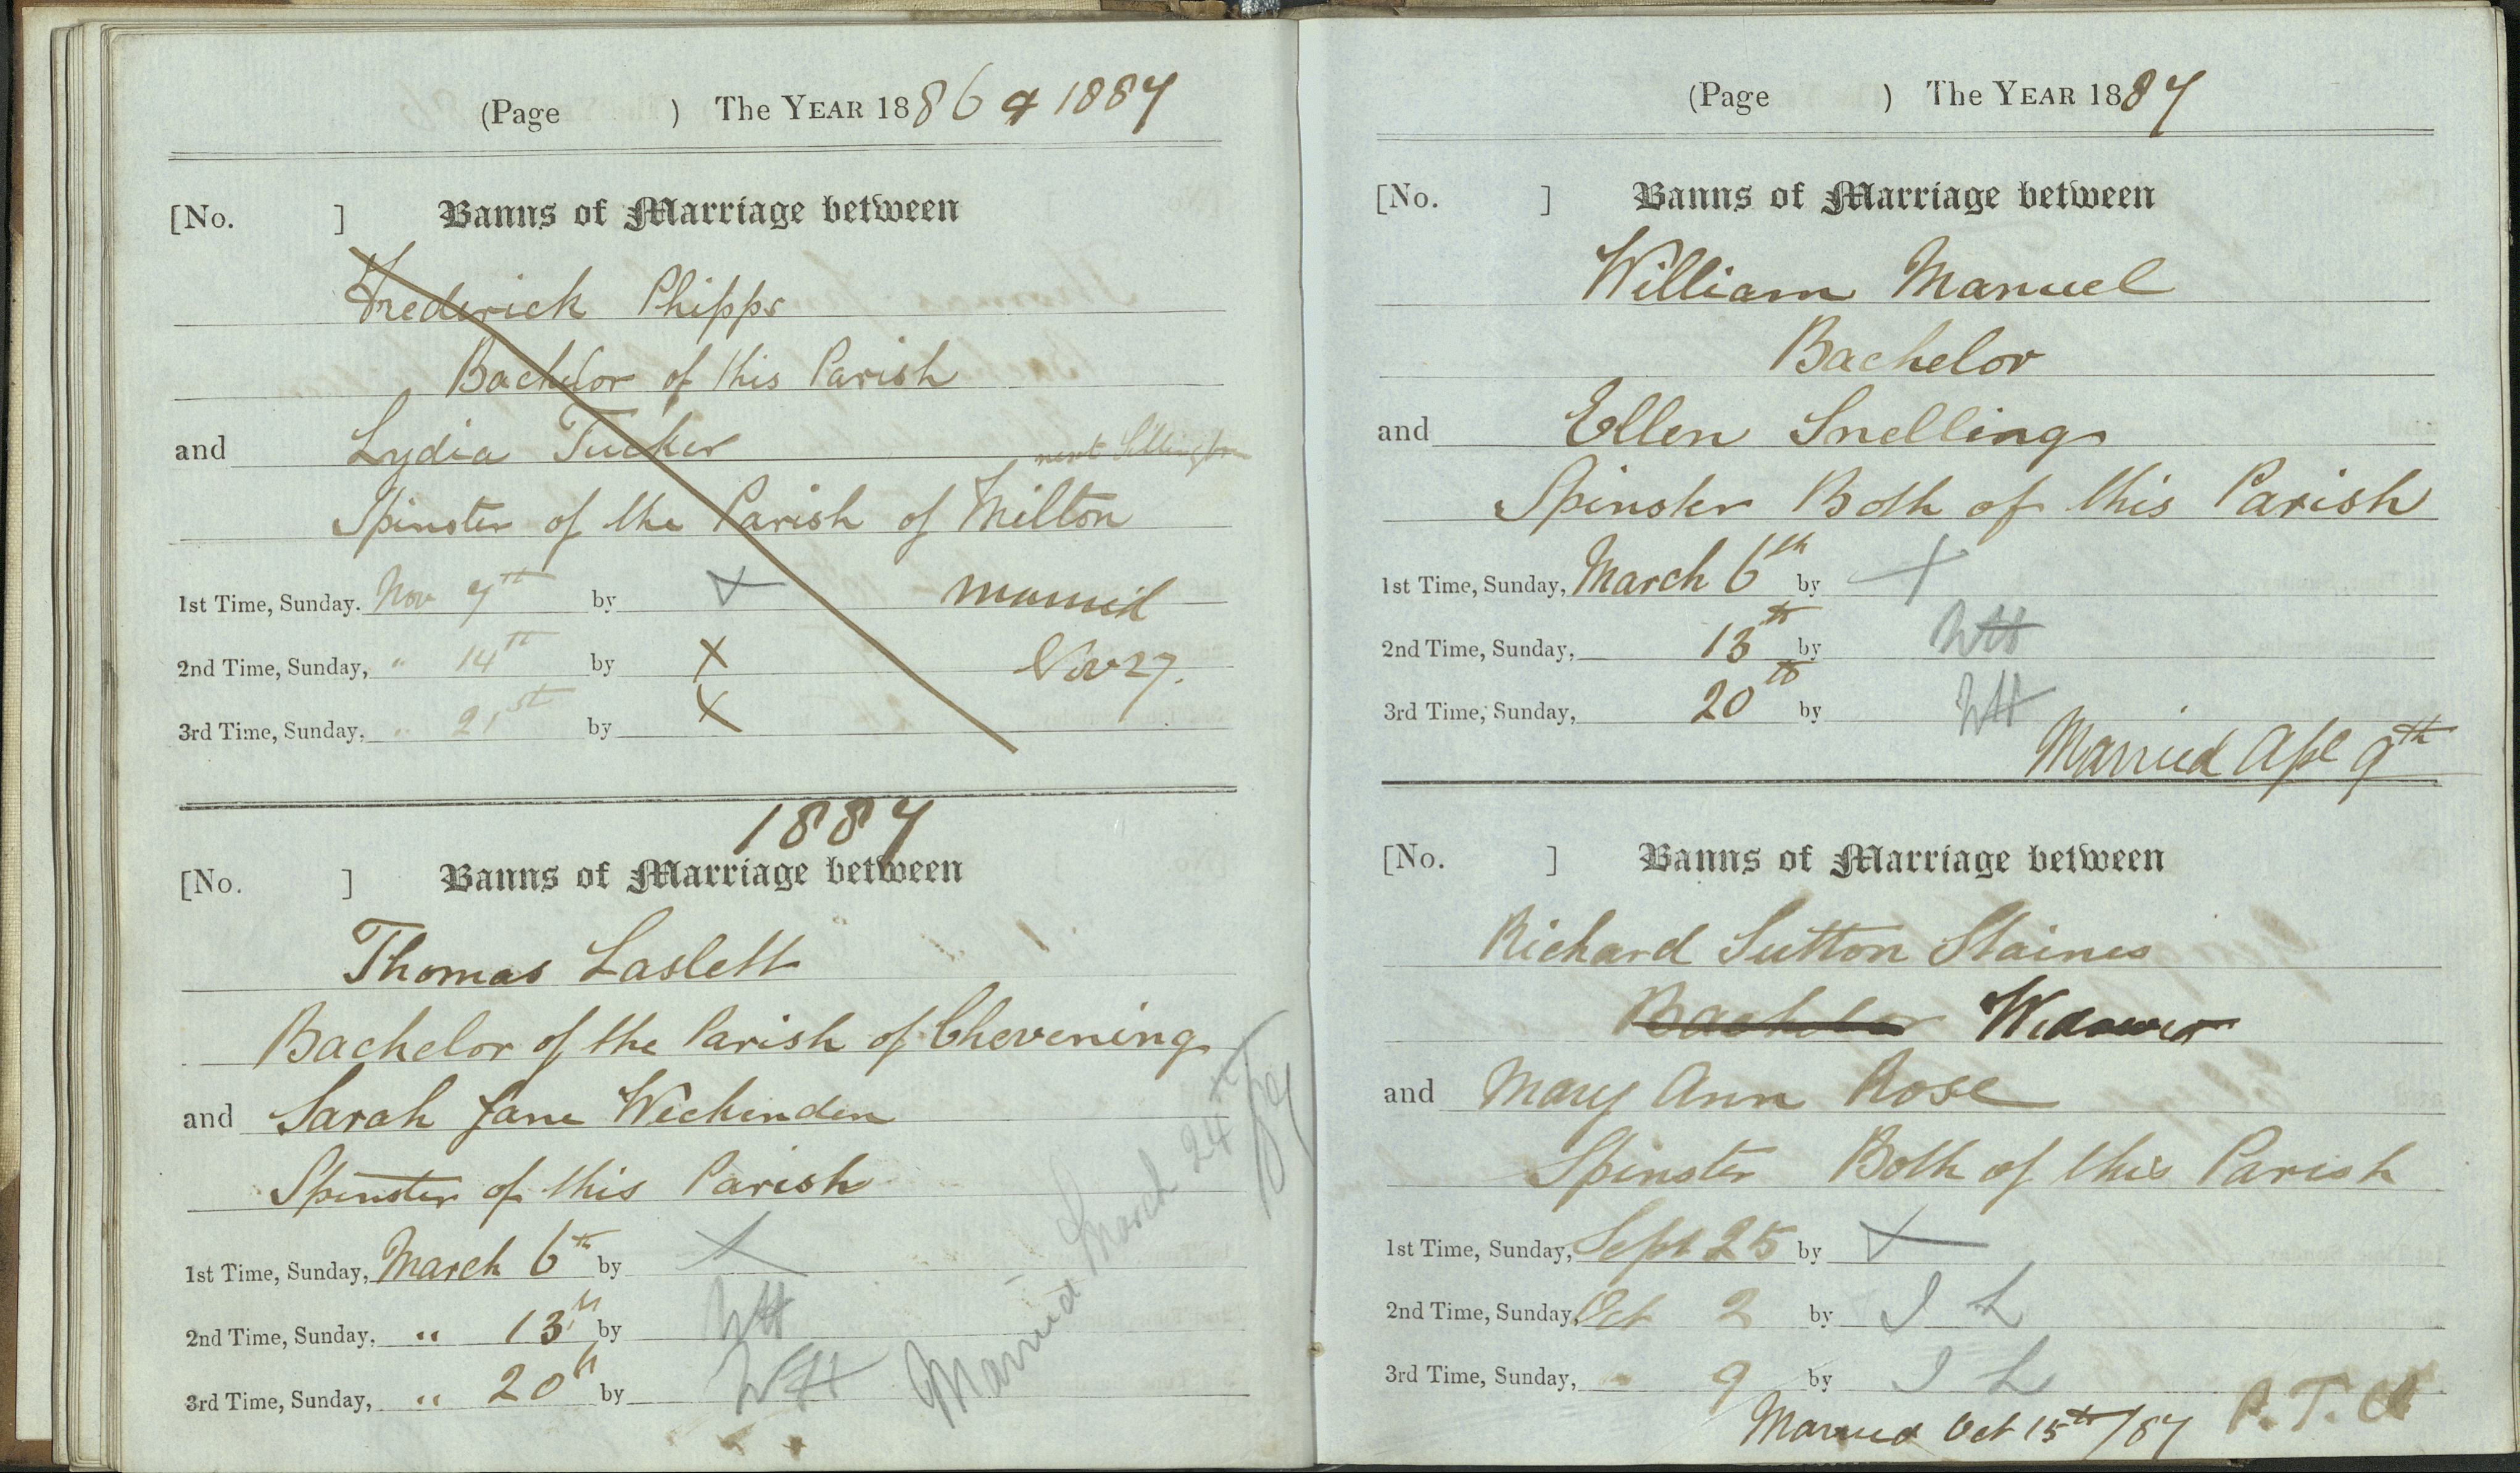 (Page ) The YEAR 1886 & 1887
[No. ] Banns of Marriage between
Frederick Phipps
Bachelor of this Parish
and Lydia Tucker next Sittingbourne
Spinster of the Parish of Milton
1st Time, Sunday. Nov 7th by X married
2nd Time, Sunday, " 14th by X Nov 27.
3rd Time, Sunday, " 21st by X
1887
[No. ] Banns of Marriage between
Thomas Laslett
Bachelor of the Parish of Chevening
and Sarah Jane Wickenden
Spinster of this Parish
1st Time, Sunday, March 6th by X
2nd Time, Sunday, " 13th by WH
3rd Time, Sunday, " 20th by WH
Married March 24th /87
(Page ) The YEAR 1887
[No. ] Banns of Marriage between
William Manuel
Bachelor
and Ellen Snelling
Spinster Both of this Parish
1st Time, Sunday, March 6th by X
2nd Time, Sunday, 13th by WH
3rd Time, Sunday, 20th by WH
Married Apl 9th
[No. ] Banns of Marriage between
Richard Sutton Staines
Bachelor Widower
and Mary Ann Rose
Spinster Both of this Parish
1st Time, Sunday, Sept 25 by X
2nd Time, Sunday, Oct 2 by I L
3rd Time, Sunday, " 9 by I L
Married Oct 15th /87 P.T.O